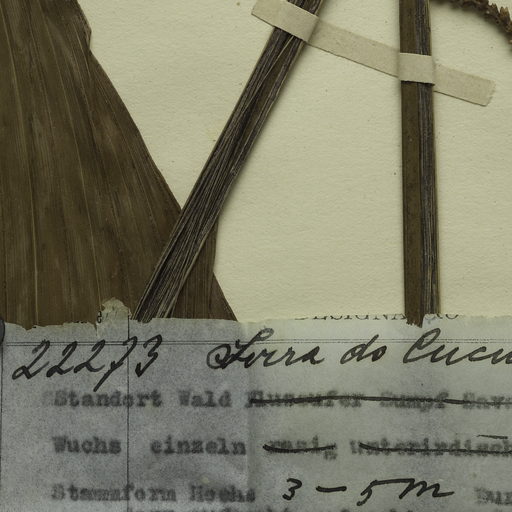 22273 Serra do Cucu
Standort Wald Flussufer Sumpf Sava
Wuchs einzeln rasig unterirdisch
Stammform Hochs 3-5m